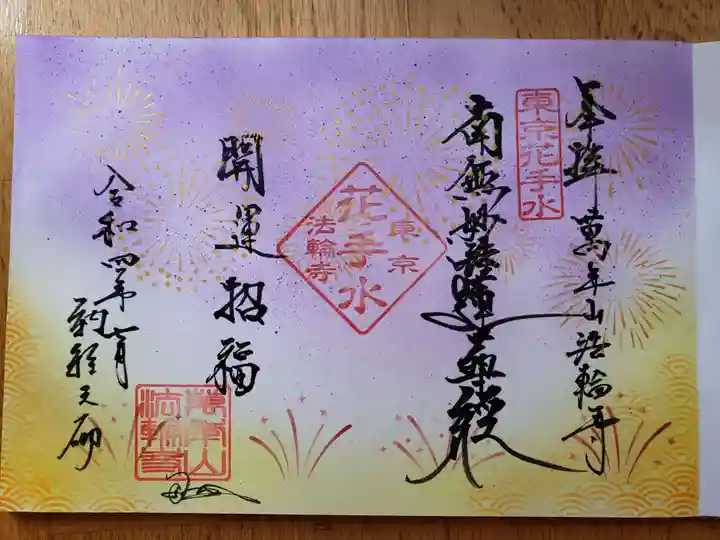 奉拝 萬年山法輪寺
東京花手水
南無妙法蓮華経
東京
花手水
法輪寺
開運招福
令和四年七月
萬年山
法輪寺